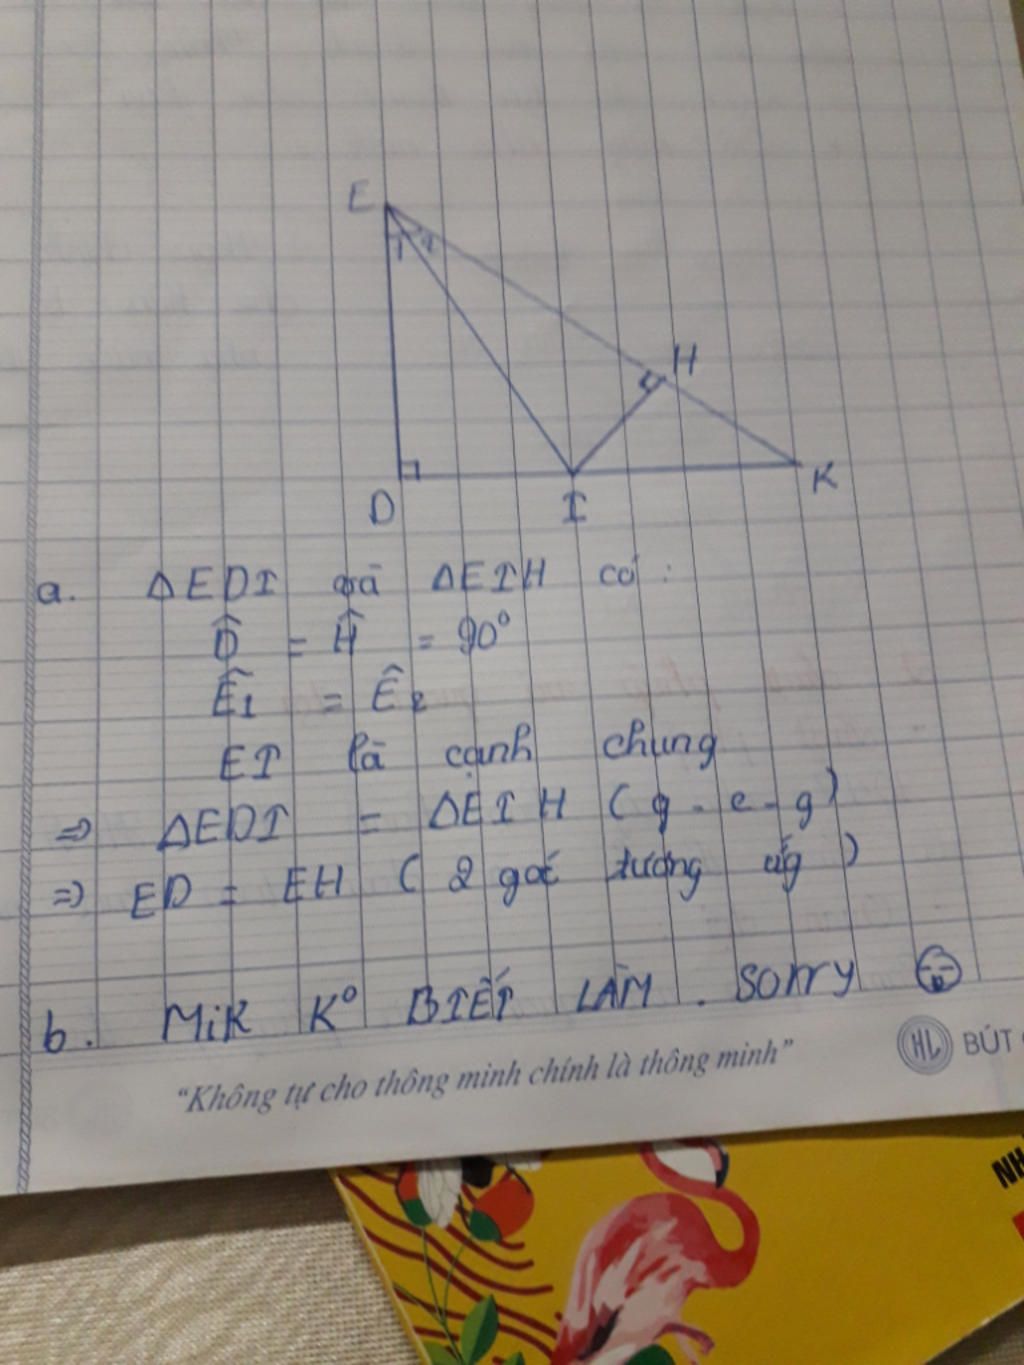 E
1 2
H
D I K
a. ΔEDI và ΔEIH có:
D̂ = Ĥ = 90°
Ê1 = Ê2
EI là cạnh chung
=> ΔEDI = ΔEIH (g-c-g)
=> ED = EH (2 goć tương ứg)
b. MiK K° BIẾT LÀM. sorry
"Không tự cho thông minh chính là thông minh"
HL BÚT
NH